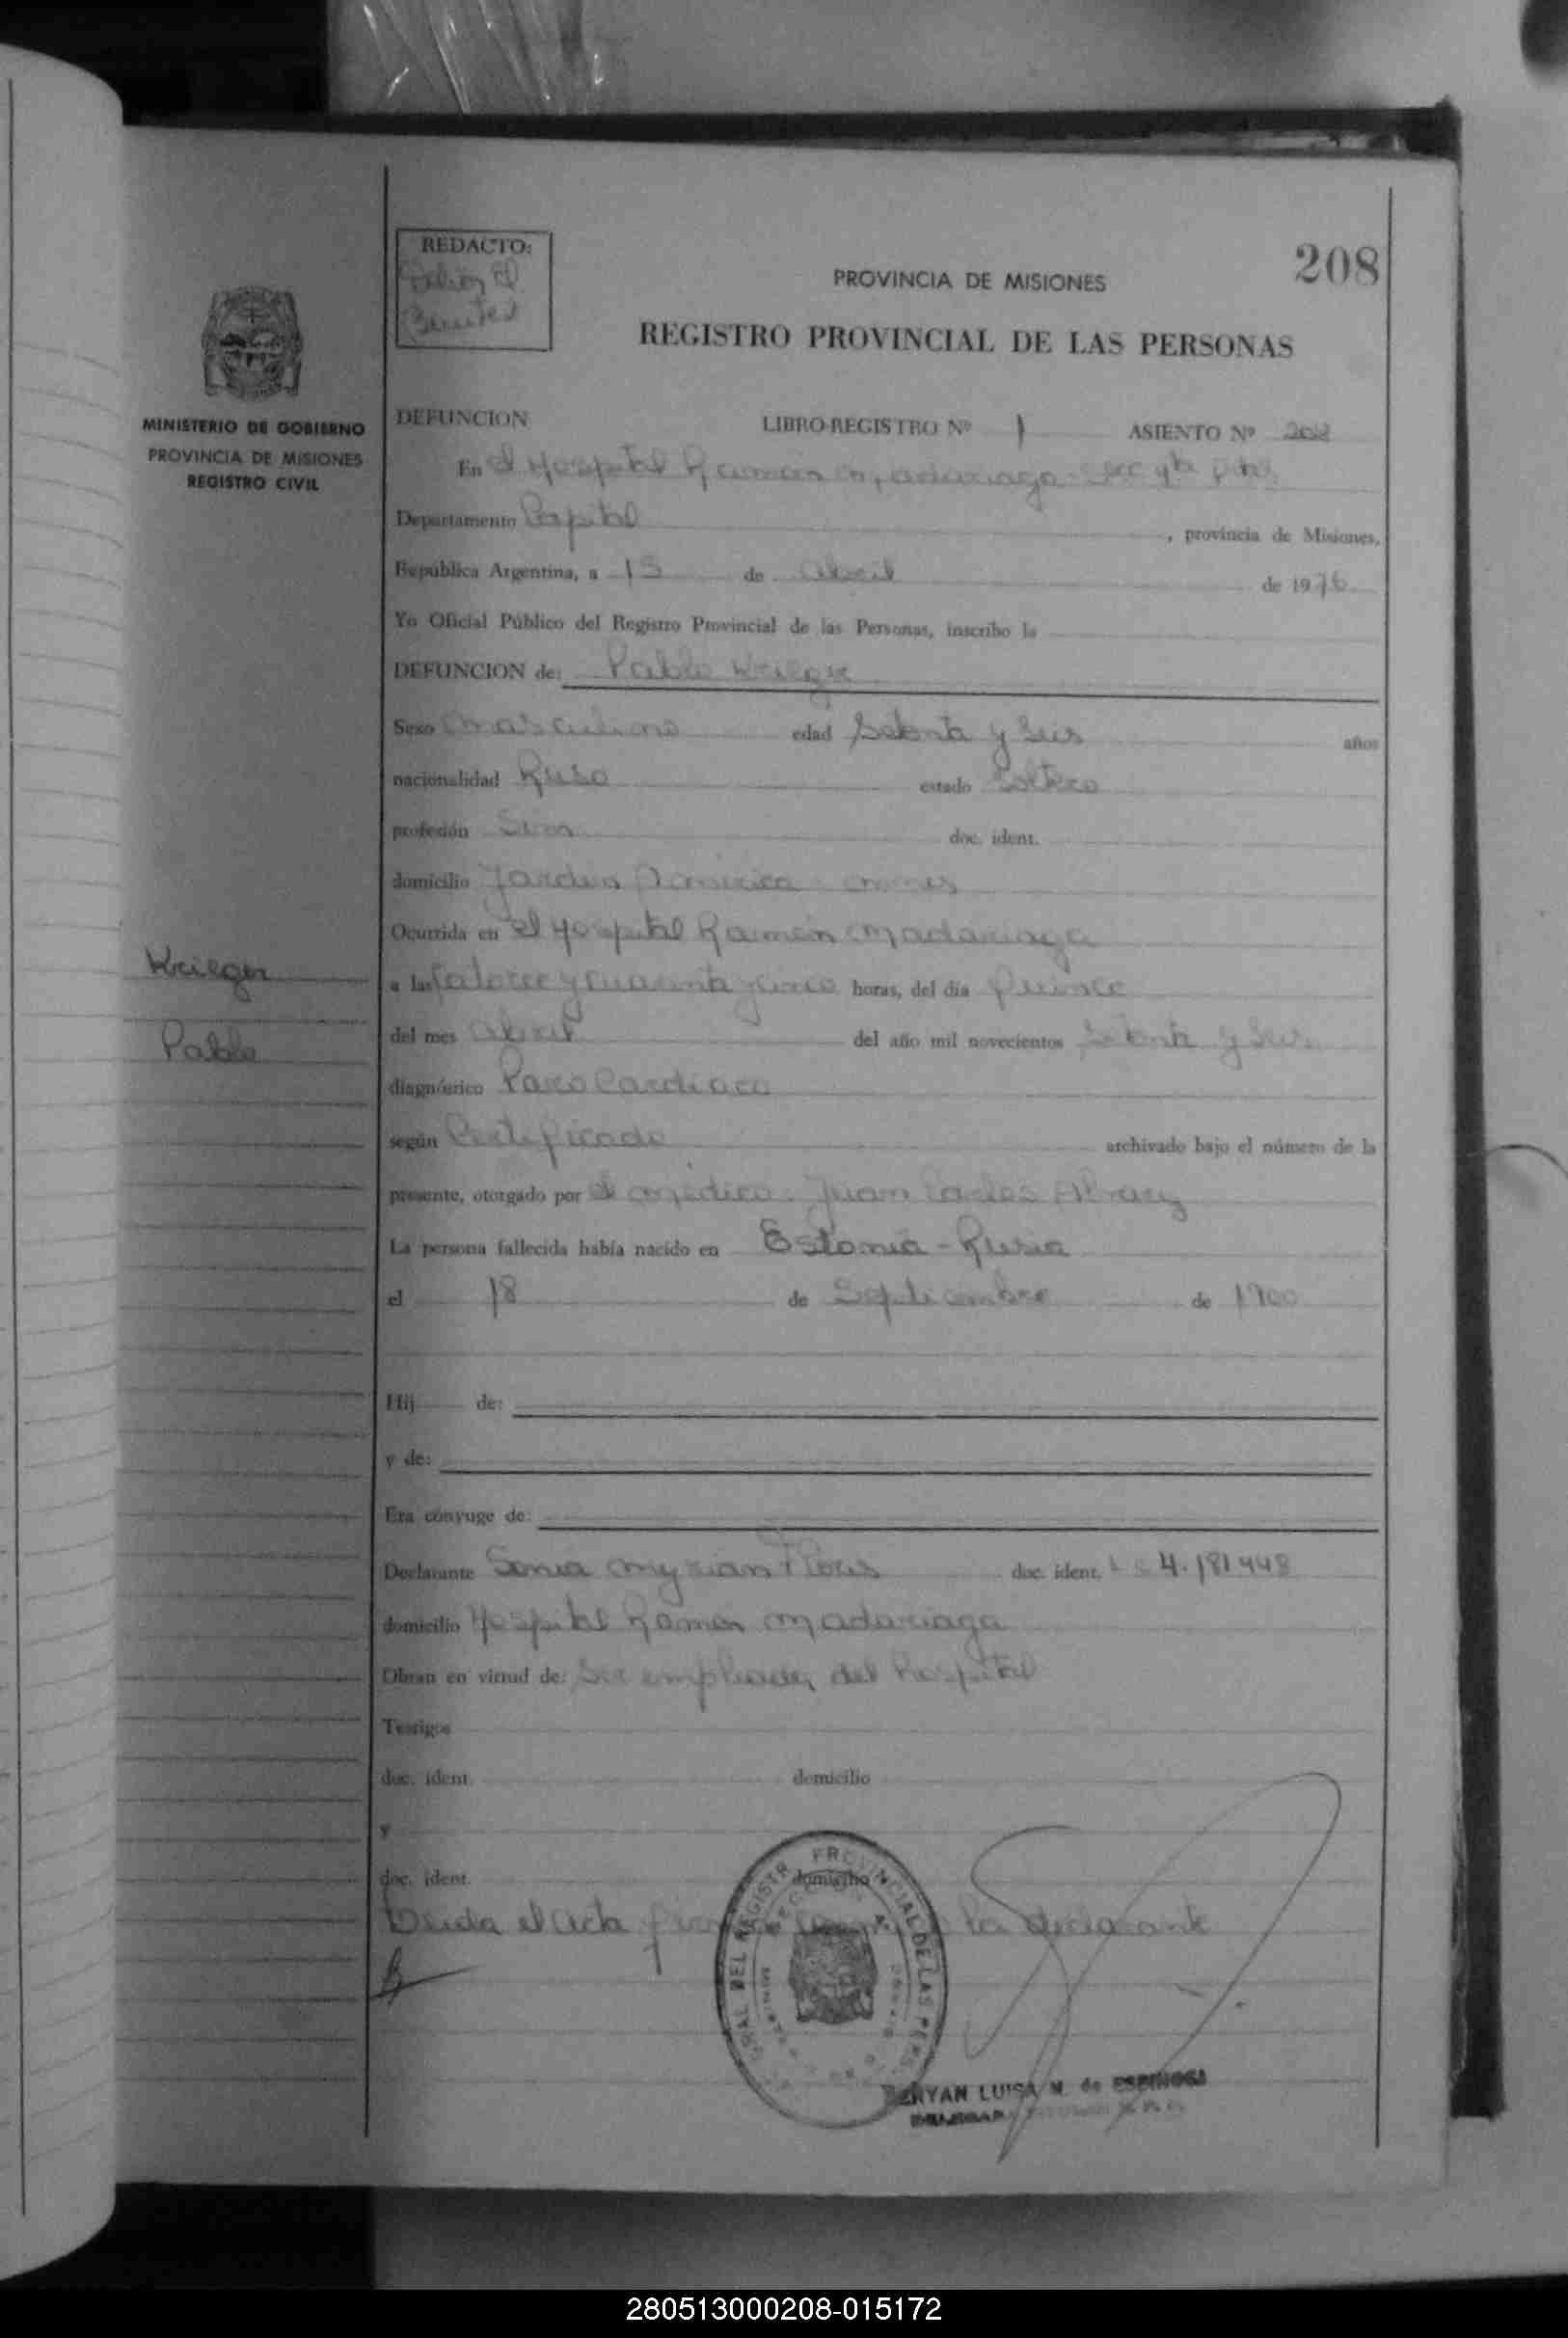 208
REDACTO:
PROVINCIA DE MISIONES
REGISTRO PROVINCIAL DE LAS PERSONAS
MINISTERIO DE GOBIERNO
PROVINCIA DE MISIONES
REGISTRO CIVIL
DEFUNCION LIBRO-REGISTRO Nº 1 ASIENTO Nº 208
En el Hospital Ramón Madariaga
Departamento Capital, provincia de Misiones,
República Argentina, a 15 de abril de 1976
Yo Oficial Público del Registro Provincial de las Personas, inscribo la
DEFUNCION de: Pablo Krieger
Sexo Masculino edad Setenta y Seis años
nacionalidad Ruso estado Soltero
profesión doc. ident.
domicilio Jardin America - Mnes
Ocurrida en el Hospital Ramón Madariaga
Krieger
a las Catorce y cuarenta y cinco horas, del día Quince
Pablo
del mes abril del año mil novecientos Setenta y Seis
diagnóstico Paro Cardiaco
según Certificado archivado bajo el número de la
presente, otorgado por el médico. Juan Carlos
La persona fallecida había nacido en Estonia - Rusia
el 18 de Septiembre de 1900
Hij de:
y de:
Era cónyuge de:
Declarante Sonia Myrian Flores doc. ident. L C 4.181948
domicilio Hospital Ramón Madariaga
Obran en virtud de: Ser empleada del hospital
Testigos
doc. ident. domicilio
y
doc. ident. domicilio
Leida el acta la declarante
LUISA M. de ESPINOSA
280513000208-015172